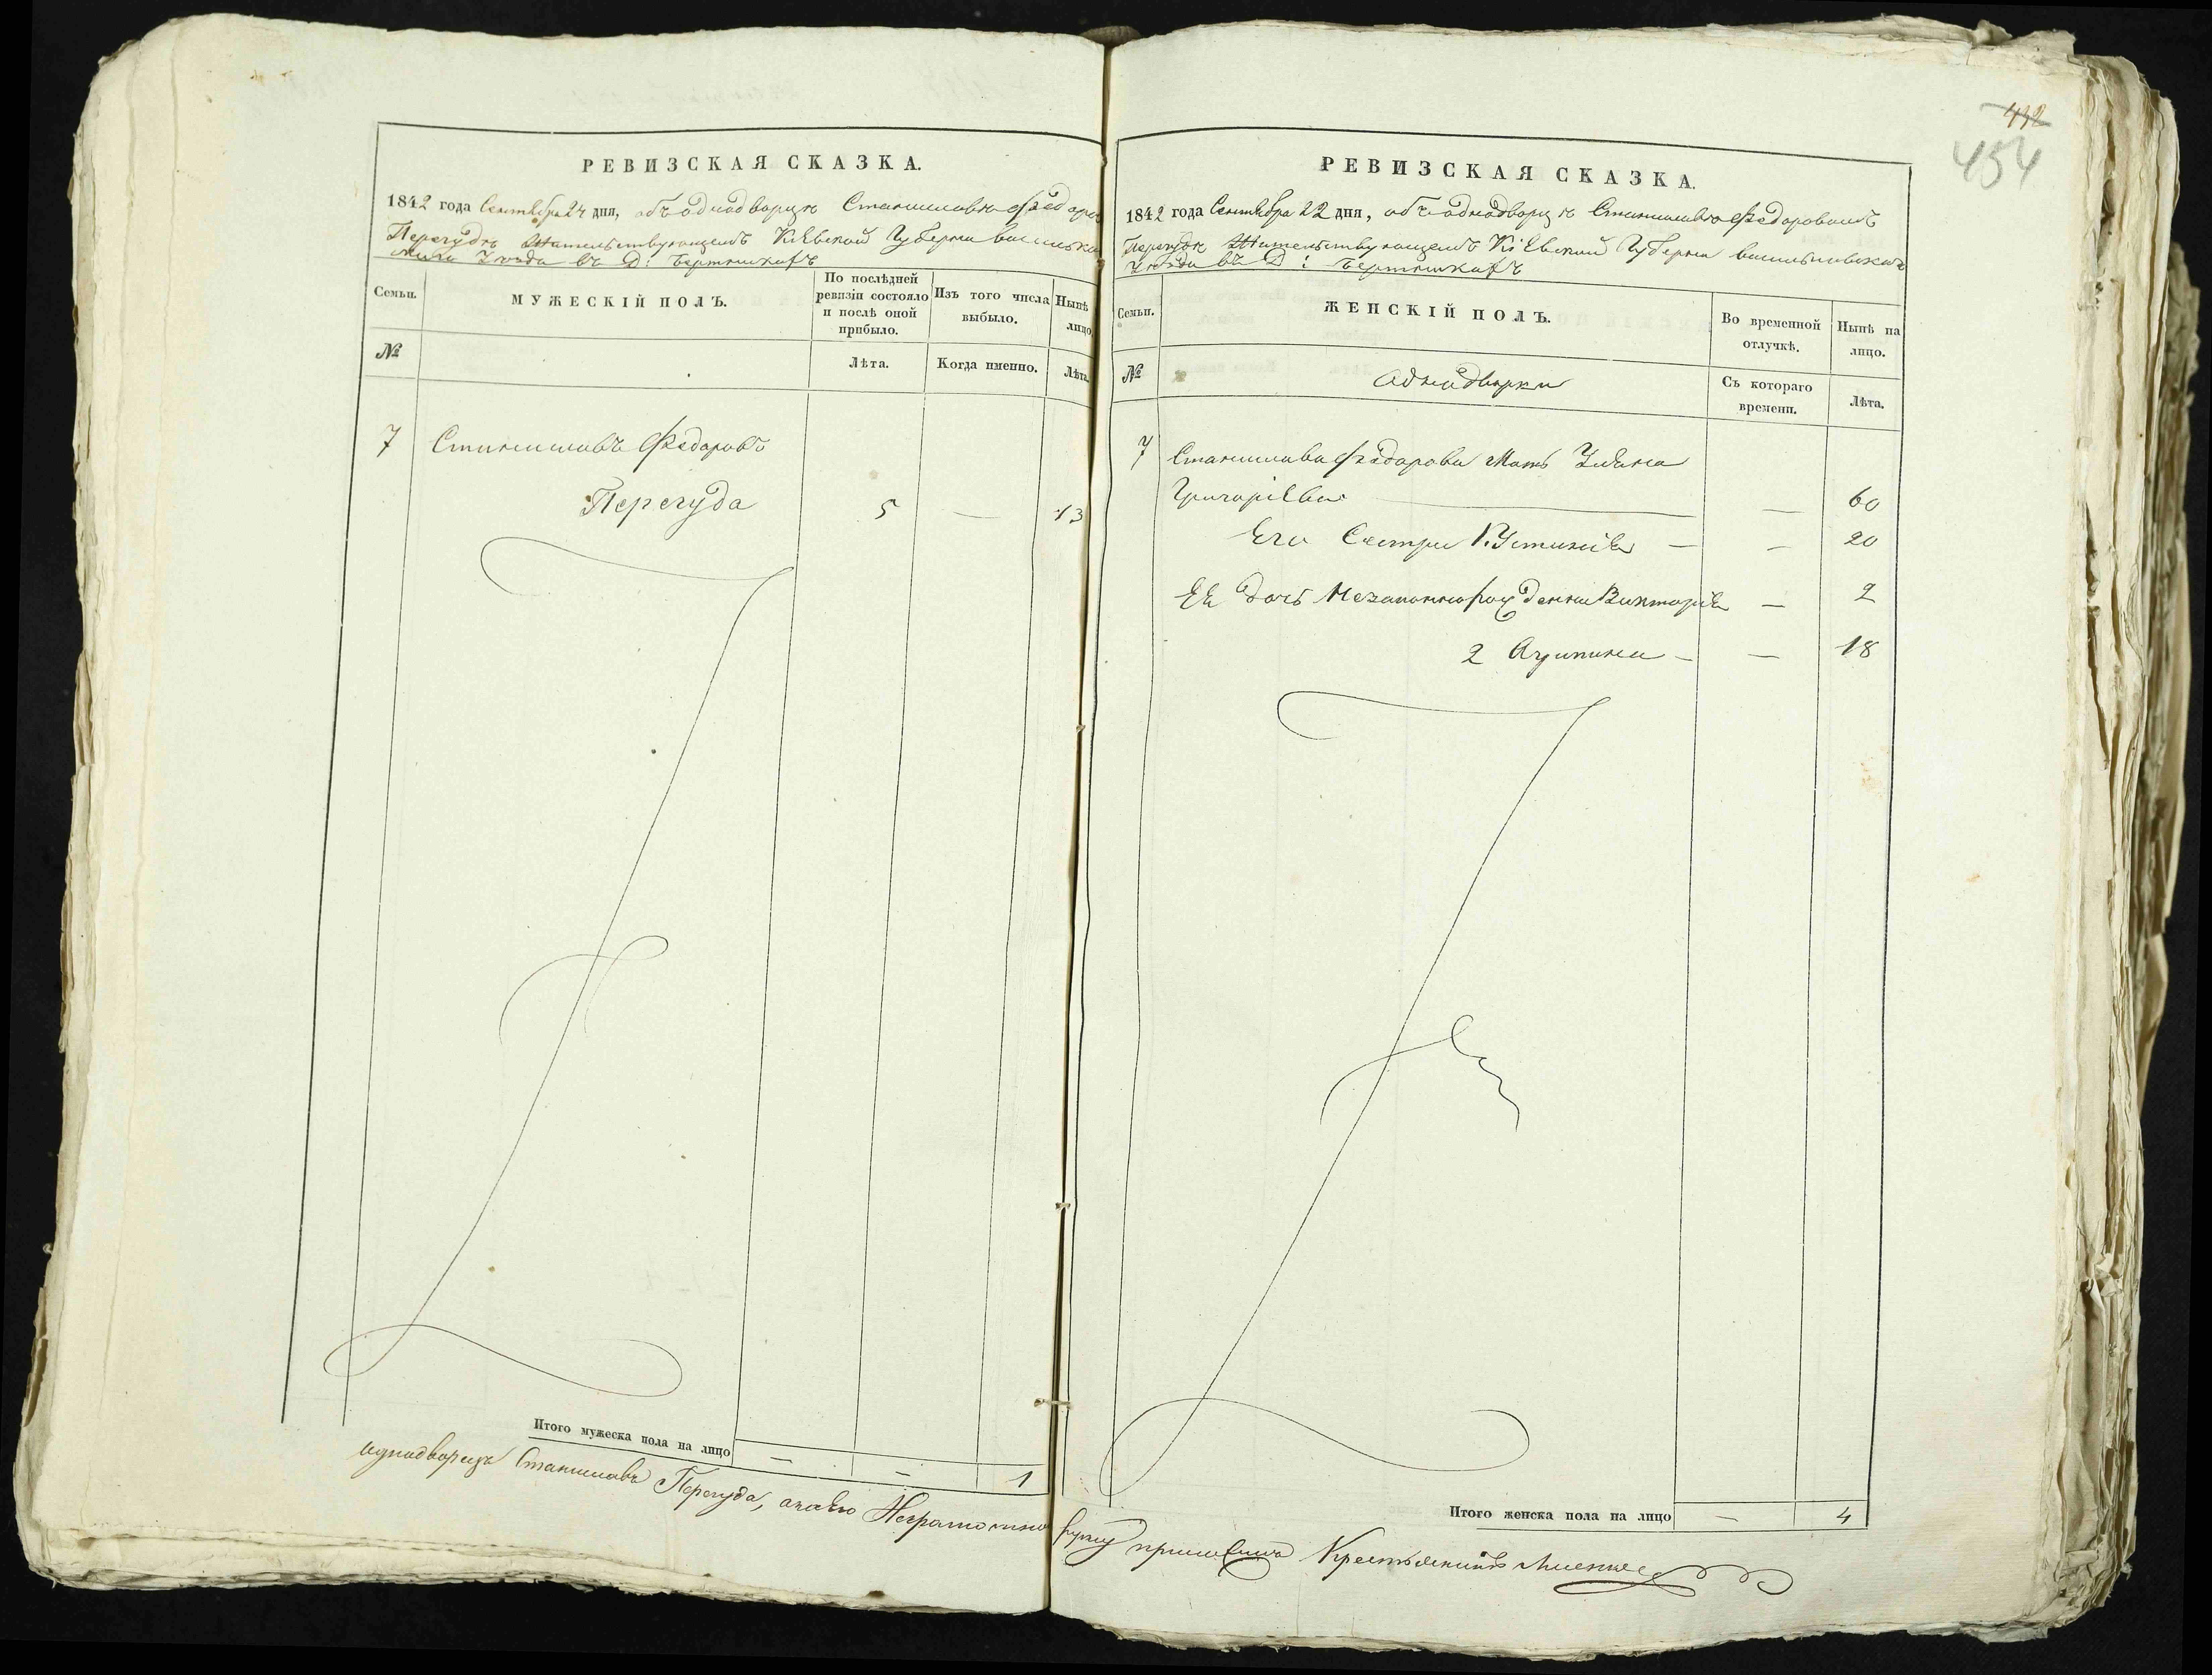 РЕВИЗСКАЯ СКАЗКА.
1842 года Сентебра 24 дня, объ аднадворцѣ Станиславѣ Федаро
Перегудѣ Жительствующемъ Кіевской Губерни васильков
скаго Уѣзда въ Д: Бертникахъ
Семьи.
МУЖЕСКІЙ ПОЛЪ.
По послѣдней ревизіи состояло и послѣ оной прибыло.
Изъ того числа выбыло.
Нынѣ лицо
№
Лѣта.
Когда именно.
Лѣта.
7 Станиславъ Федаровъ
Перегуда 5 — 13
Итого мужеска пола на лицо — — 1
аднадворецъ Станиславъ Перегуда, а
432
454
РЕВИЗСКАЯ СКАЗКА.
1842 года Сентебра 22 дня, объ аднадворцѣ Станиславѣ Федаровомъ
Перегудѣ Жительствующемъ Кіевской Губерни васильковскаго
Уѣзда въ Д: Бертникахъ
Семьи.
ЖЕНСКІЙ ПОЛЪ.
Во временной отлучкѣ.
Нынѣ на лицо.
№
Аднадворки
Съ котораго времени.
Лѣта.
7 Станислава Федарова Мать Уляна
Григоріева — — 60
Его Сестри 1. Устинія — — 20
Ея дочь Незаконнорожденна Викторія — 2
2 Агрипина — — 18
Итого женска пола на лицо — 4
руку Крестьянинъ